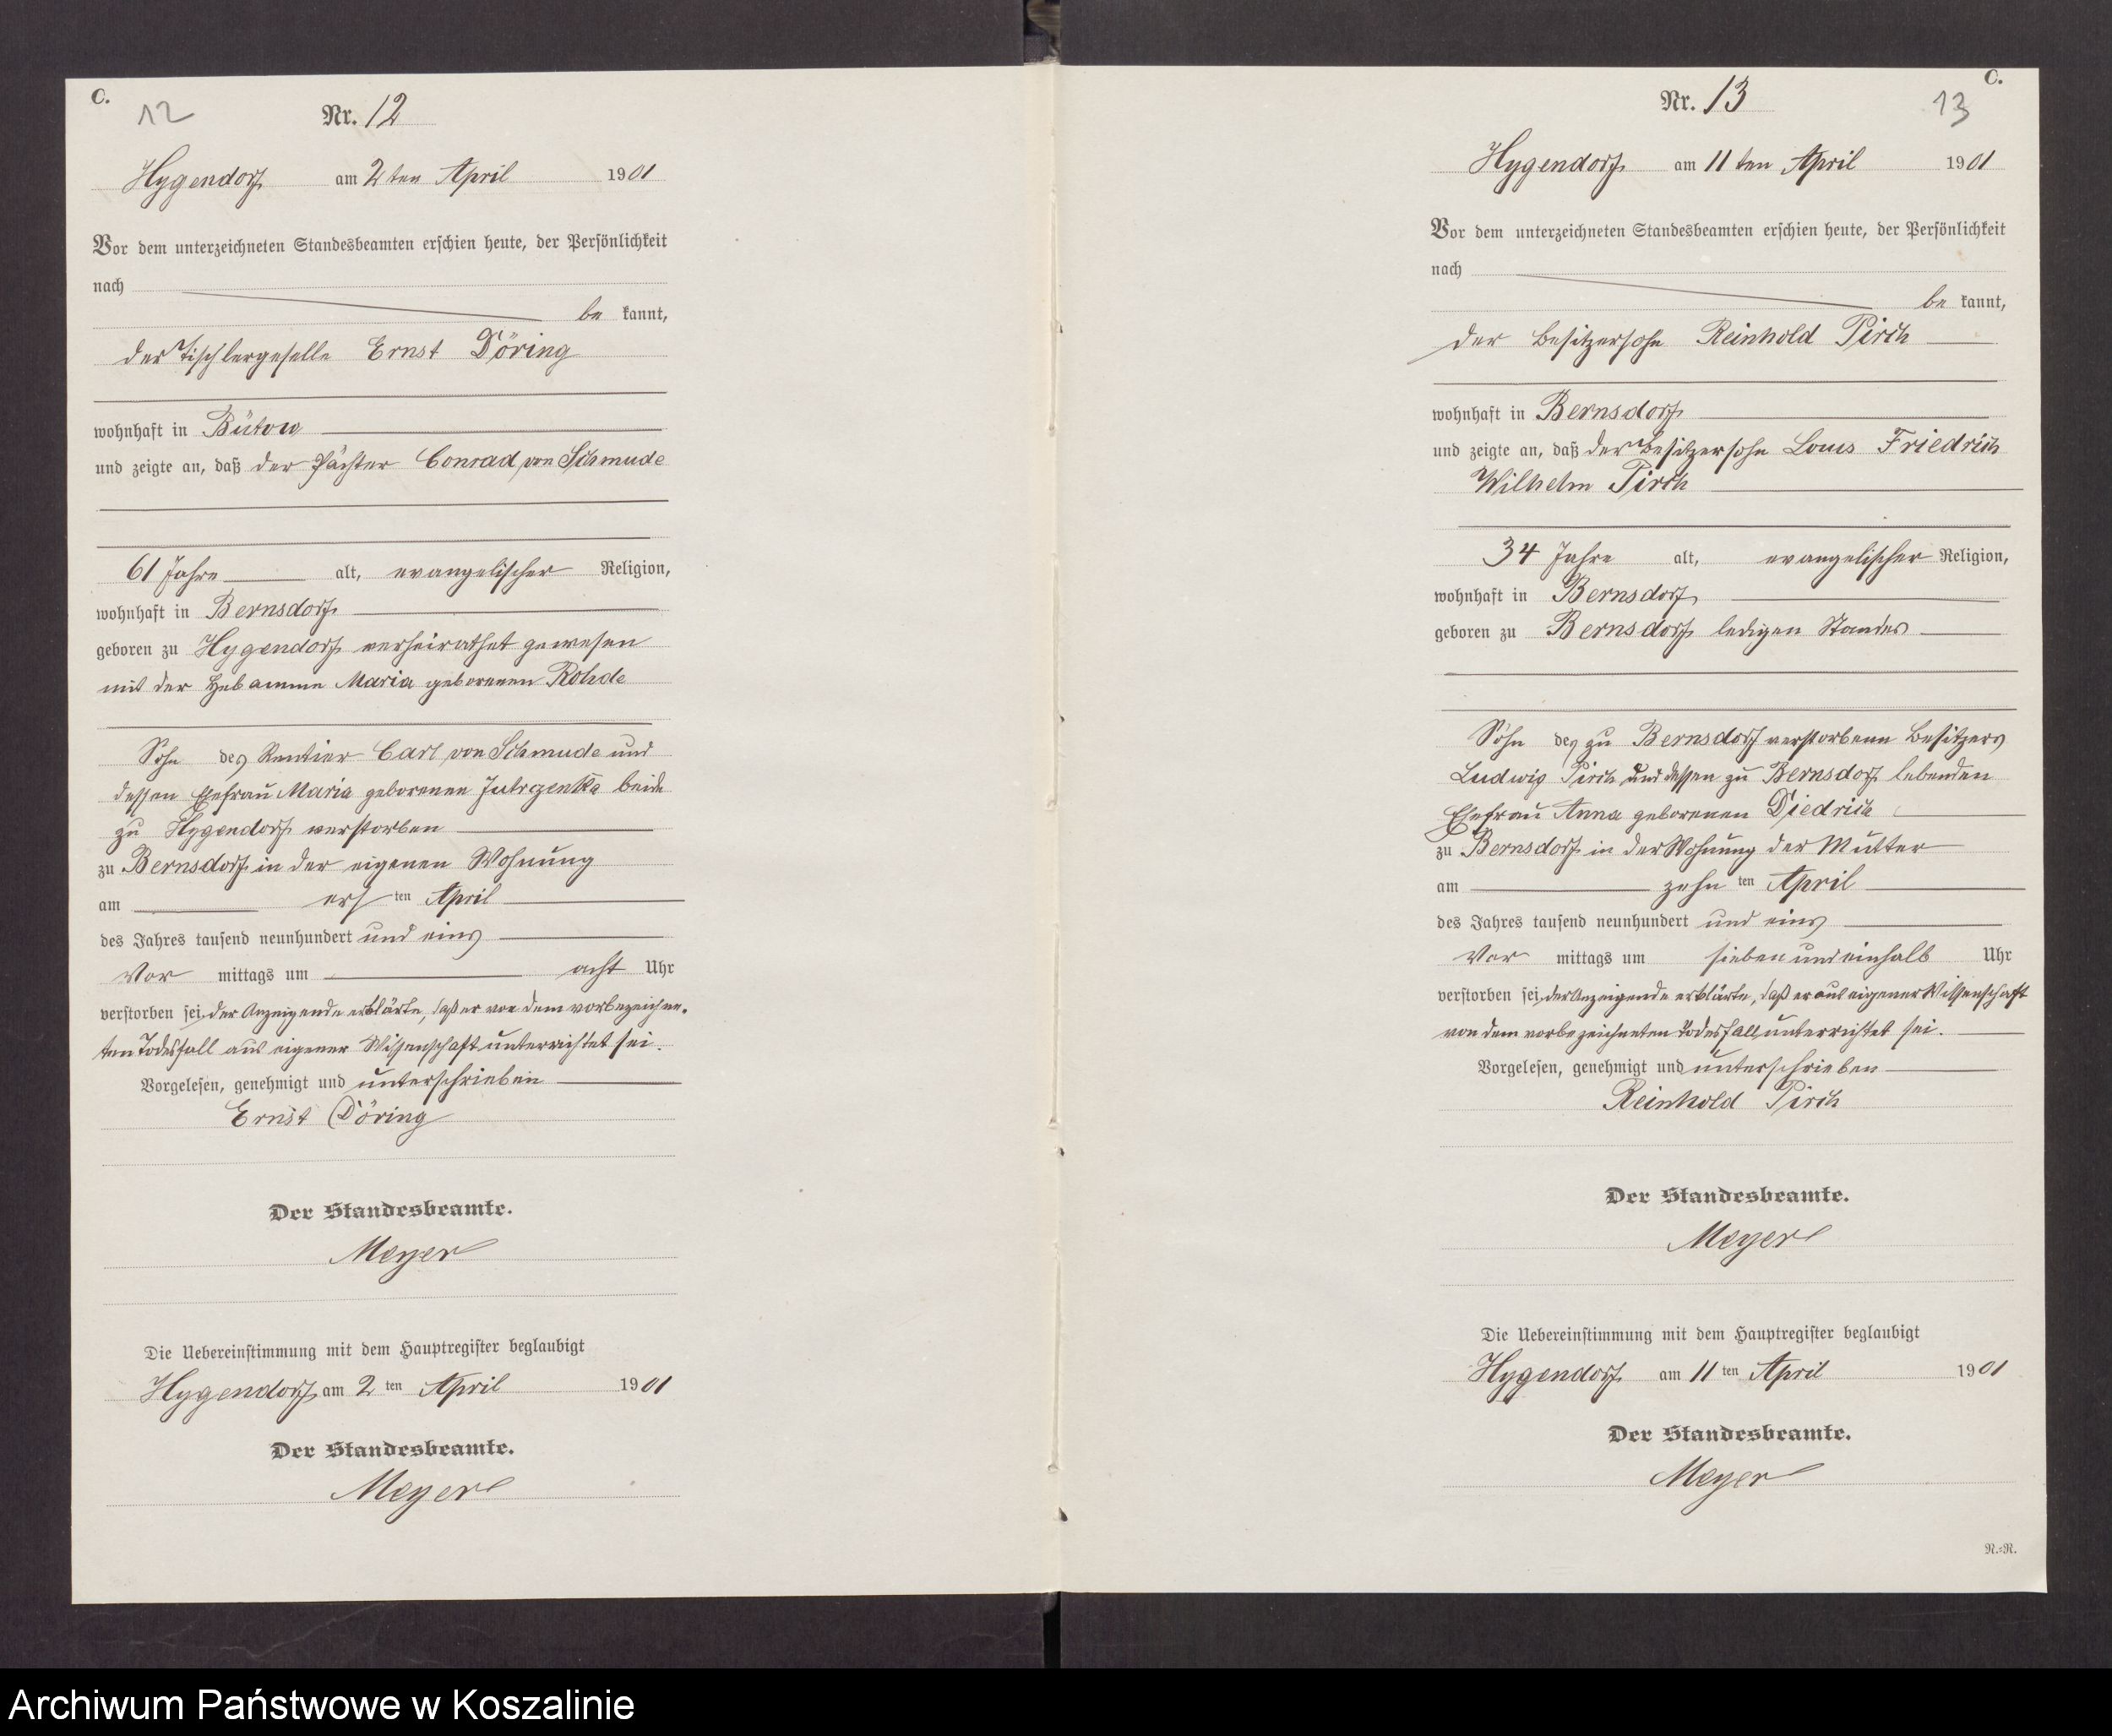 C.
12
Nr. 12
Hygendorf am 2ten April 1901
Vor dem unterzeichneten Standesbeamten erschien heute, der Persönlichkeit
nach
be kannt,
der Tischlergeselle Ernst Döring
wohnhaft in Bütow
und zeigte an, daß der Pächter Conrad von Schmude
61 Jahre alt, evangelischer Religion,
wohnhaft in Bernsdorf
geboren zu Hygendorf verheirathet gewesen
mit der Hebamme Maria geborenen Rohde
Sohn des Rentier Carl von Schmude und
dessen Ehefrau Maria geborenen Jutrzenka beide
zu Hygendorf verstorben
zu Bernsdorf in der eigenen Wohnung
am ersten April
des Jahres tausend neunhundert und eins
Vor mittags um acht Uhr
verstorben sei, der Anzeigende erklärte, daß er von dem vorbezeichne-
ten Todesfall aus eigener Wissenschaft unterrichtet sei.
Vorgelesen, genehmigt und unterschrieben
Ernst Döring
Der Standesbeamte.
Meyer
Die Uebereinstimmung mit dem Hauptregister beglaubigt
Hygendorf am 2ten April 1901
Der Standesbeamte.
Meyer
C.
Nr. 13
13
Hygendorf am 11ten April 1901
Vor dem unterzeichneten Standesbeamten erschien heute, der Persönlichkeit
nach
be kannt,
der Besitzersohn Reinhold Pirch
wohnhaft in Bernsdorf
und zeigte an, daß der Besitzersohn Louis Friedrich
Wilhelm Pirch
34 Jahre alt, evangelischer Religion,
wohnhaft in Bernsdorf
geboren zu Bernsdorf ledigen Standes
Sohn des zu Bernsdorf verstorbenen Besitzers
Ludwig Pirch und dessen zu Bernsdorf lebenden
Ehefrau Anna geborenen Diedrich
zu Bernsdorf in der Wohnung der Mutter
am zehnten April
des Jahres tausend neunhundert und eins
Vor mittags um sieben und einhalb Uhr
verstorben sei, der Anzeigende erklärte, daß er aus eigener Wissenschaft
von dem vorbezeichneten Todesfall unterrichtet sei.
Vorgelesen, genehmigt und unterschrieben
Reinhold Pirch
Der Standesbeamte.
Meyer
Die Uebereinstimmung mit dem Hauptregister beglaubigt
Hygendorf am 11ten April 1901
Der Standesbeamte.
Meyer
N.=R.
Archiwum Państwowe w Koszalinie